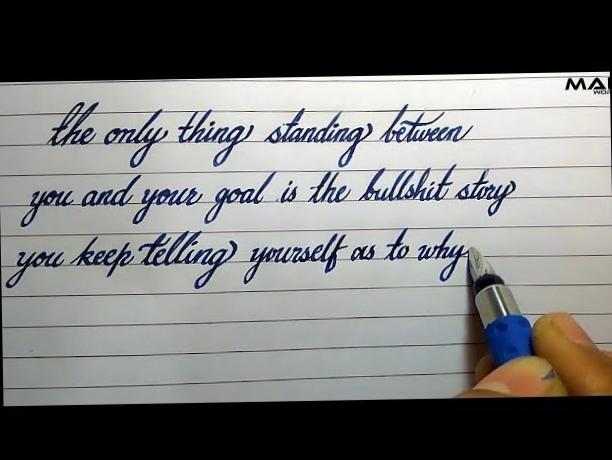 MA
WO
the only thing standing between
you and your goal is the bullshit story
you keep telling yourself as to why